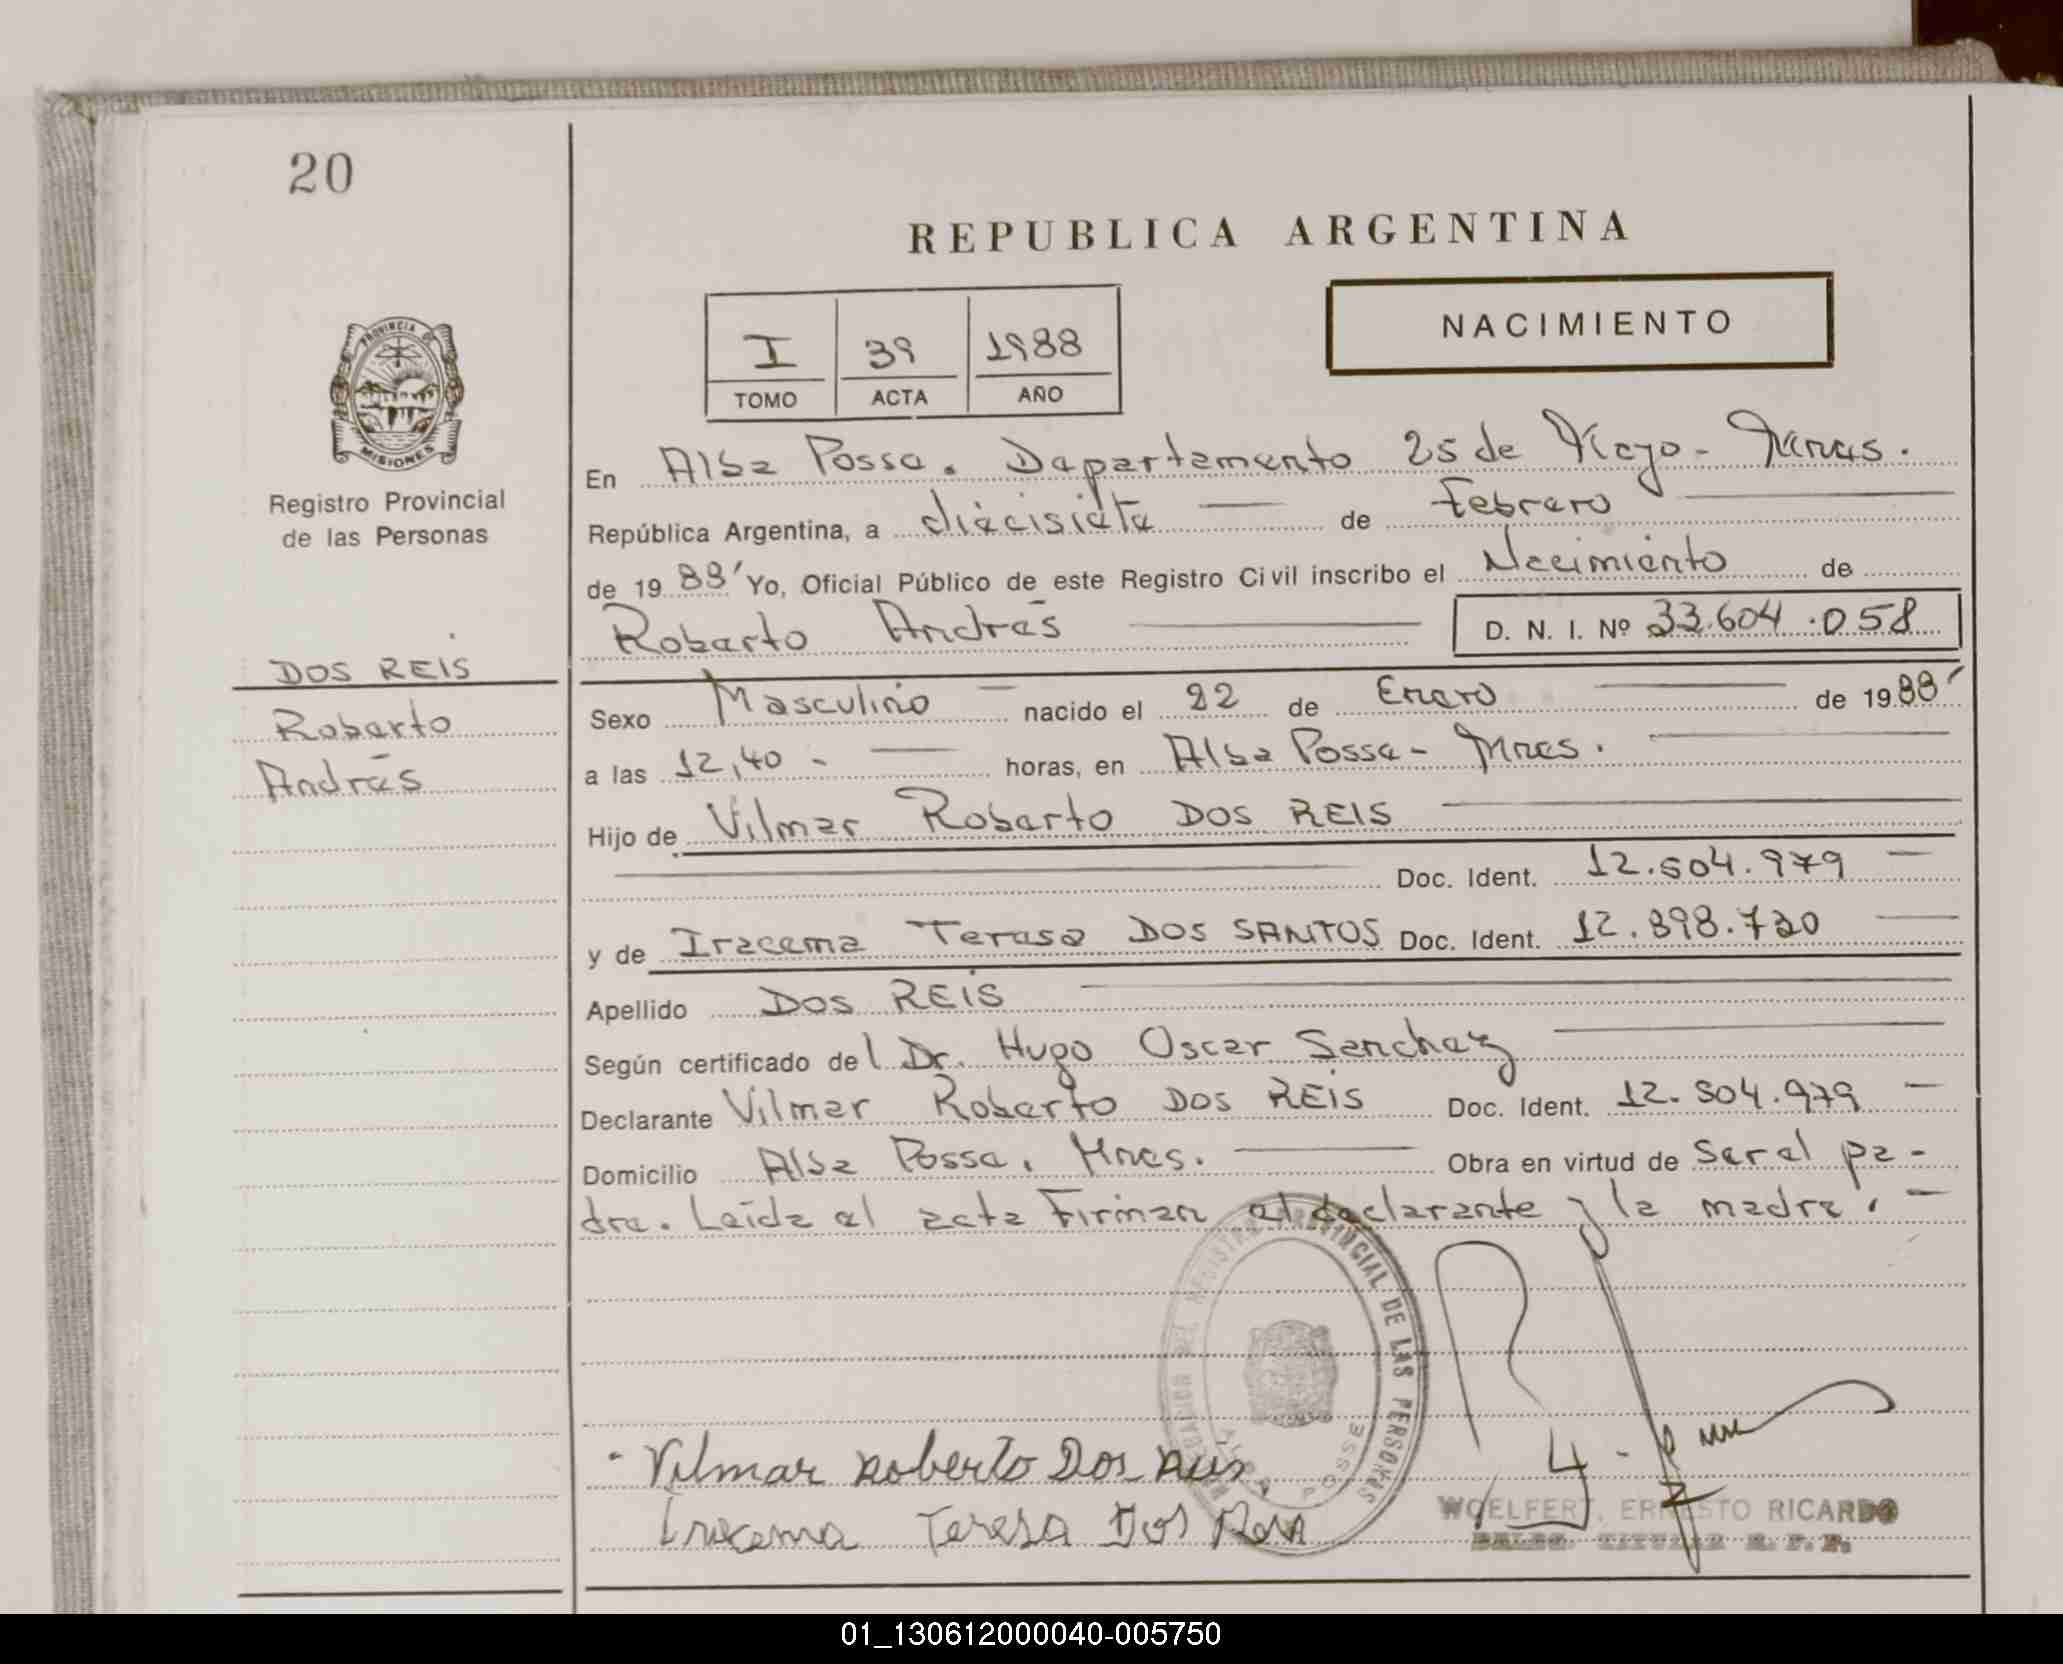 20
REPUBLICA ARGENTINA
NACIMIENTO
I 39 1988
TOMO ACTA AÑO
PROVINCIA DE
MISIONES
Registro Provincial
de las Personas
DOS REIS
Roberto
Andrés
En Alba Posse. Departamento 25 de Mayo - Mnes.
República Argentina, a diecisiete de Febrero
de 1988 Yo, Oficial Público de este Registro Civil inscribo el Nacimiento de
Roberto Andrés D. N. I. Nº 33.604.058
Sexo Masculino nacido el 22 de Enero de 1988
a las 12,40 - horas, en Alba Posse - Mnes.
Hijo de Vilmar Roberto DOS REIS
Doc. Ident. 12.504.979
y de Iracema Teresa DOS SANTOS Doc. Ident. 12.898.730
Apellido DOS REIS
Según certificado del Dr. Hugo Oscar Sanchez
Declarante Vilmar Roberto DOS REIS Doc. Ident. 12.504.979
Domicilio Alba Posse, Mnes. Obra en virtud de Ser el pa-
dre. Leida el acta Firman el declarante y la madre.
REGISTRO PROVINCIAL DE LAS PERSONAS
ALBA POSSE
Vilmar Roberto Dos Reis
Iracema Teresa Dos
WOELFERT, ERNESTO RICARDO
DELEG. TITULAR R. P. P.
01_130612000040-005750